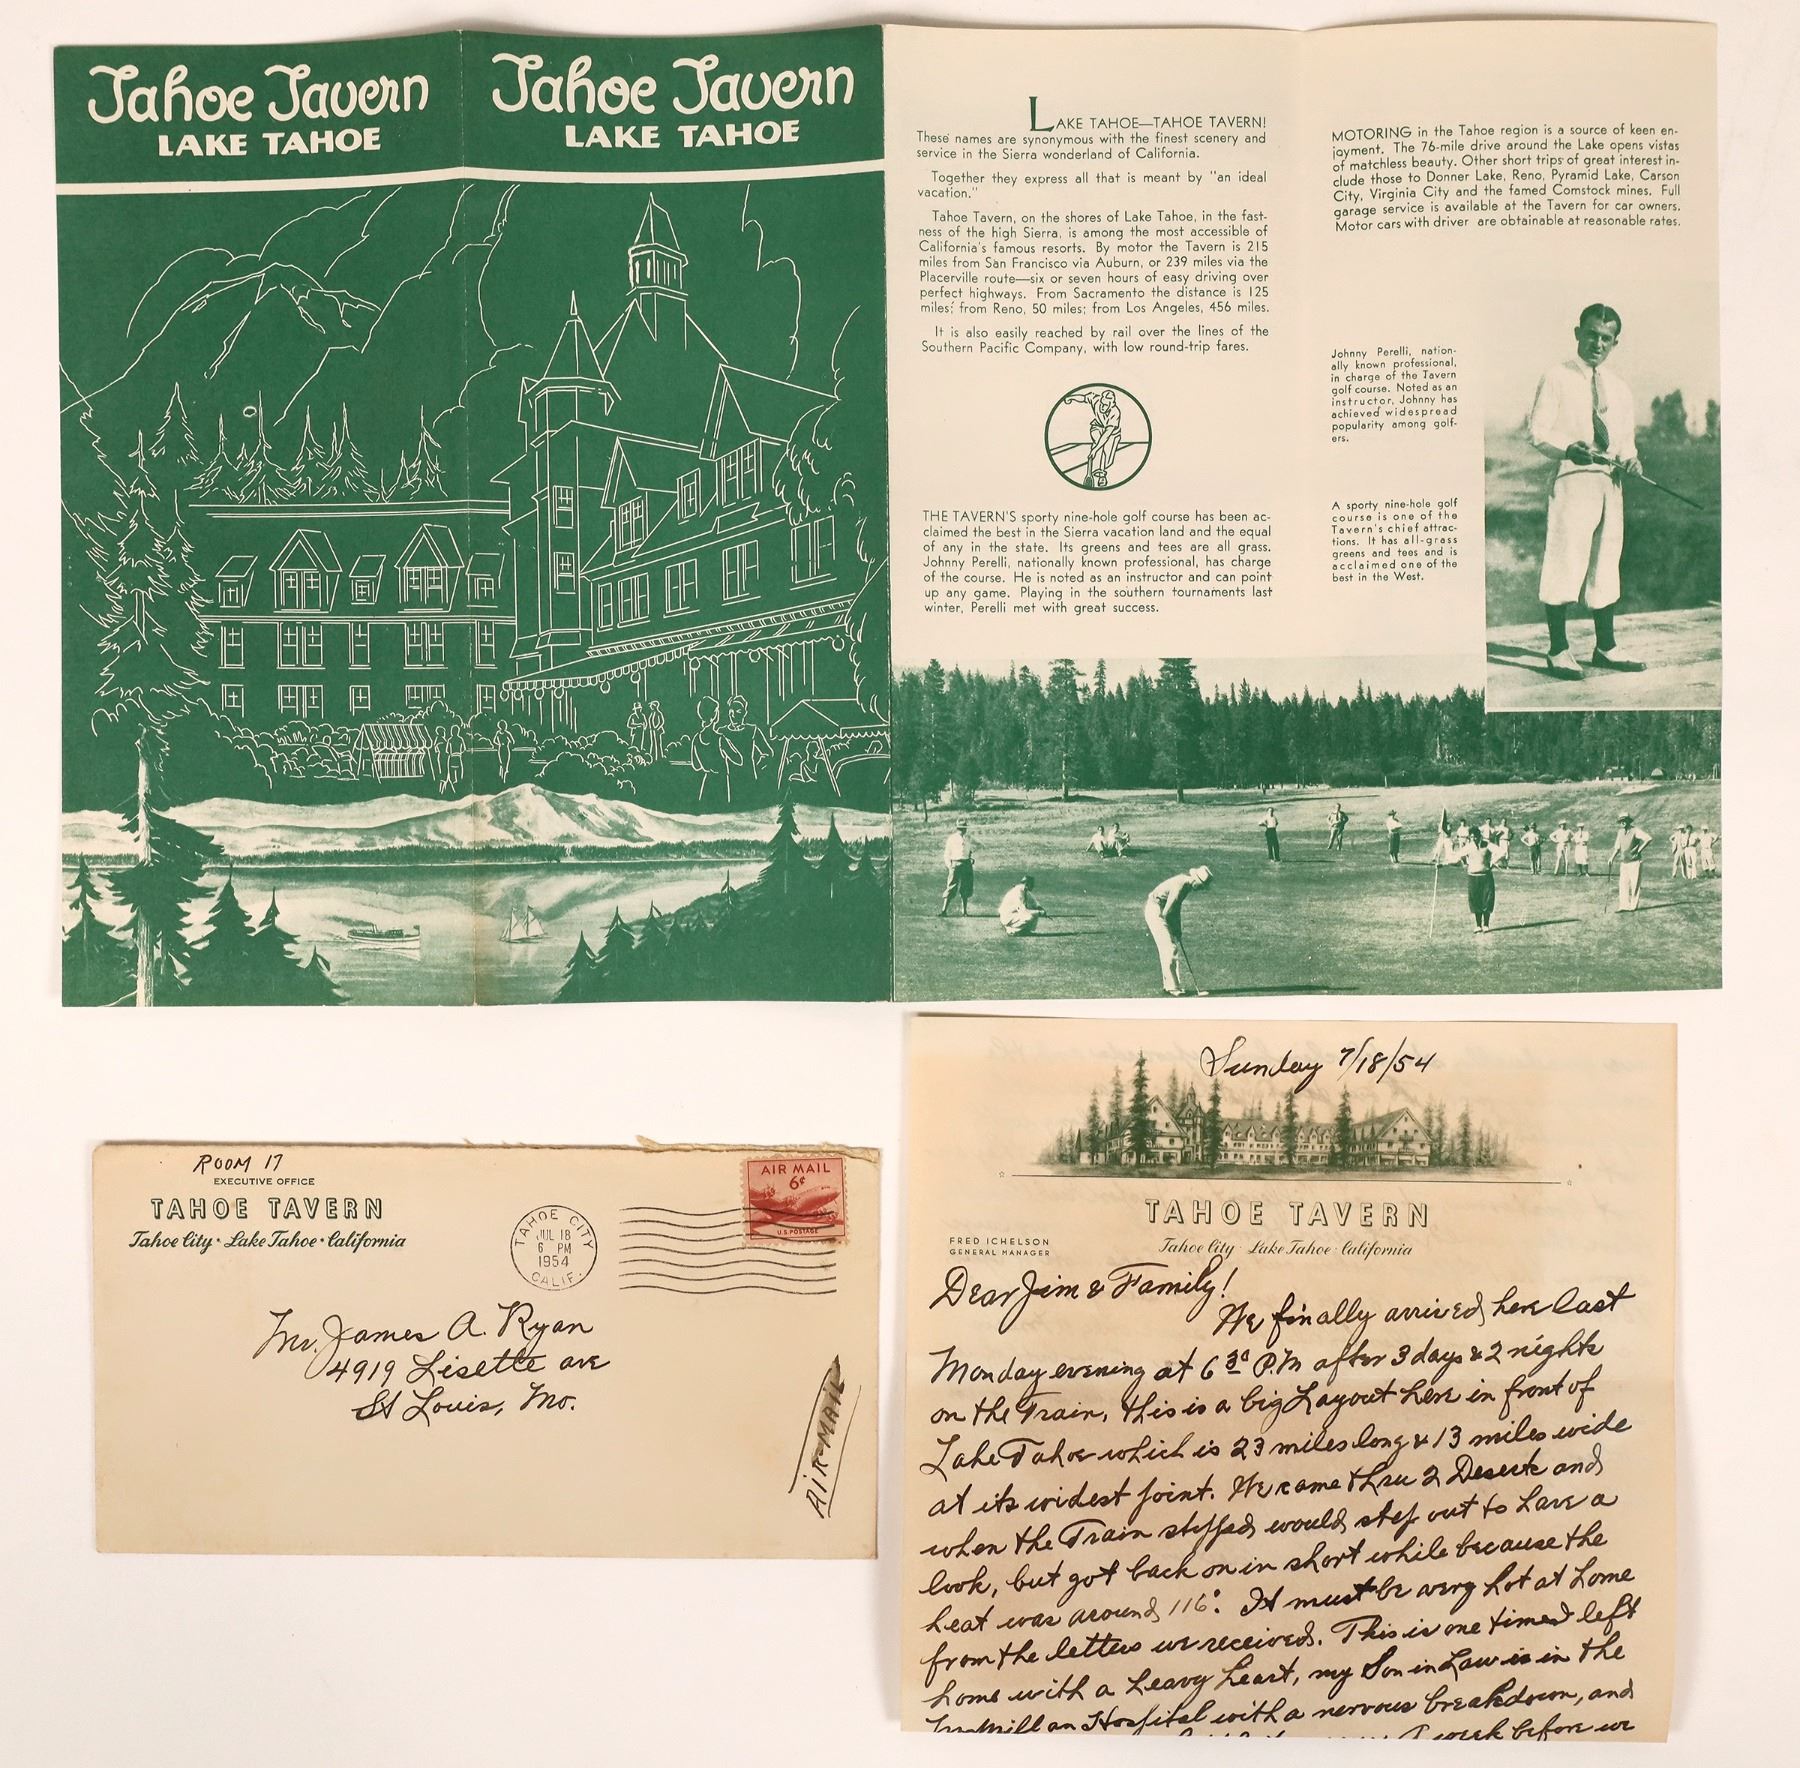 Tahoe Tavern
LAKE TAHOE
Tahoe Tavern
LAKE TAHOE
LAKE TAHOE—TAHOE TAVERN!
These names are synonymous with the finest scenery and
service in the Sierra wonderland of California.
Together they express all that is meant by "an ideal
vacation."
Tahoe Tavern, on the shores of Lake Tahoe, in the fast-
ness of the high Sierra, is among the most accessible of
California's famous resorts. By motor the Tavern is 215
miles from San Francisco via Auburn, or 239 miles via the
Placerville route—six or seven hours of easy driving over
perfect highways. From Sacramento the distance is 125
miles; from Reno, 50 miles; from Los Angeles, 456 miles.
It is also easily reached by rail over the lines of the
Southern Pacific Company, with low round-trip fares.
THE TAVERN'S sporty nine-hole golf course has been ac-
claimed the best in the Sierra vacation land and the equal
of any in the state. Its greens and tees are all grass.
Johnny Perelli, nationally known professional, has charge
of the course. He is noted as an instructor and can point
up any game. Playing in the southern tournaments last
winter, Perelli met with great success.
MOTORING in the Tahoe region is a source of keen en-
joyment. The 76-mile drive around the Lake opens vistas
of matchless beauty. Other short trips of great interest in-
clude those to Donner Lake, Reno, Pyramid Lake, Carson
City, Virginia City and the famed Comstock mines. Full
garage service is available at the Tavern for car owners.
Motor cars with driver are obtainable at reasonable rates.
Johnny Perelli, nation-
ally known professional,
in charge of the Tavern
golf course. Noted as an
instructor, Johnny has
achieved widespread
popularity among golf-
ers.
A sporty nine-hole golf
course is one of the
Tavern's chief attrac-
tions. It has all-grass
greens and tees and is
acclaimed one of the
best in the West.
ROOM 17
EXECUTIVE OFFICE
TAHOE TAVERN
Tahoe City · Lake Tahoe · California
TAHOE CITY
JUL 18
6 PM
1954
CALIF.
AIR MAIL
6¢
U.S. POSTAGE
Mr. James A. Ryan
4919 Lisette ave
St Louis, Mo.
AIR-MAIL
Sunday 7/18/54
TAHOE TAVERN
Tahoe City · Lake Tahoe · California
FRED ICHELSON
GENERAL MANAGER
Dear Jim & Family!
We finally arrived here last
Monday evening at 6 30 P.M after 3 days & 2 nights
on the Train, this is a big Layout here in front of
Lake Tahoe which is 23 miles long & 13 miles wide
at its widest point. We came thru 2 Deserts and
when the Train stopped would step out to have a
look, but got back on in short while because the
heat was around 116°. It must be very hot at home
from the letters we received. This is one time I left
home with a heavy heart, my Son in Law is in the
McMillan Hospital with a nervous breakdown, and
week before we